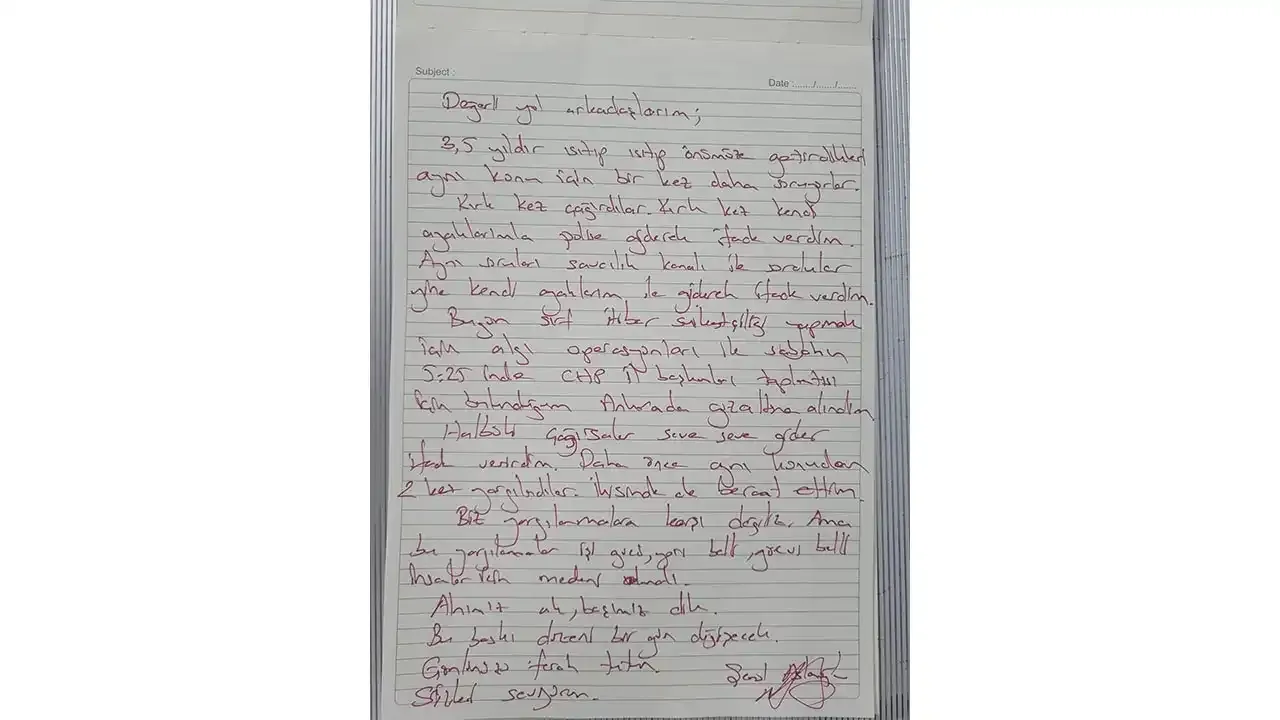 Subject :
Date :....../....../......
Değerli yol arkadaşlarım;
3,5 yıldır ısıtıp ısıtıp önümüze getirdikleri
aynı konu için bir kez daha soruyorlar.
Kırk kez çağırdılar. Kırk kez kendi
ayaklarımla polise giderek ifade verdim.
Aynı soruları savcılık kanalı ile sordular
yine kendi ayaklarım ile giderek ifade verdim.
Bugün sırf itibar suikastçiliği yapmak
için algı operasyonları ile sabahın
5:25 inde CHP il başkanları toplantısı
için bulunduğum Ankarada gözaltına alındım
Halbuki çağırsalar seve seve gider
ifade verirdim. Daha önce aynı konudan
2 kez yargıladılar. İkisinde de beraat ettim.
Biz yargılanmalara karşı değiliz. Ama
bu yargılamalar işi gücü, yeri belli, görevi belli
insanlar için medeni olmalı.
Alnımız ak, başımız dik.
Bu baskı düzeni bir gün değişecek.
Gönlünüzü ferah tutun.
Sizleri seviyorum.